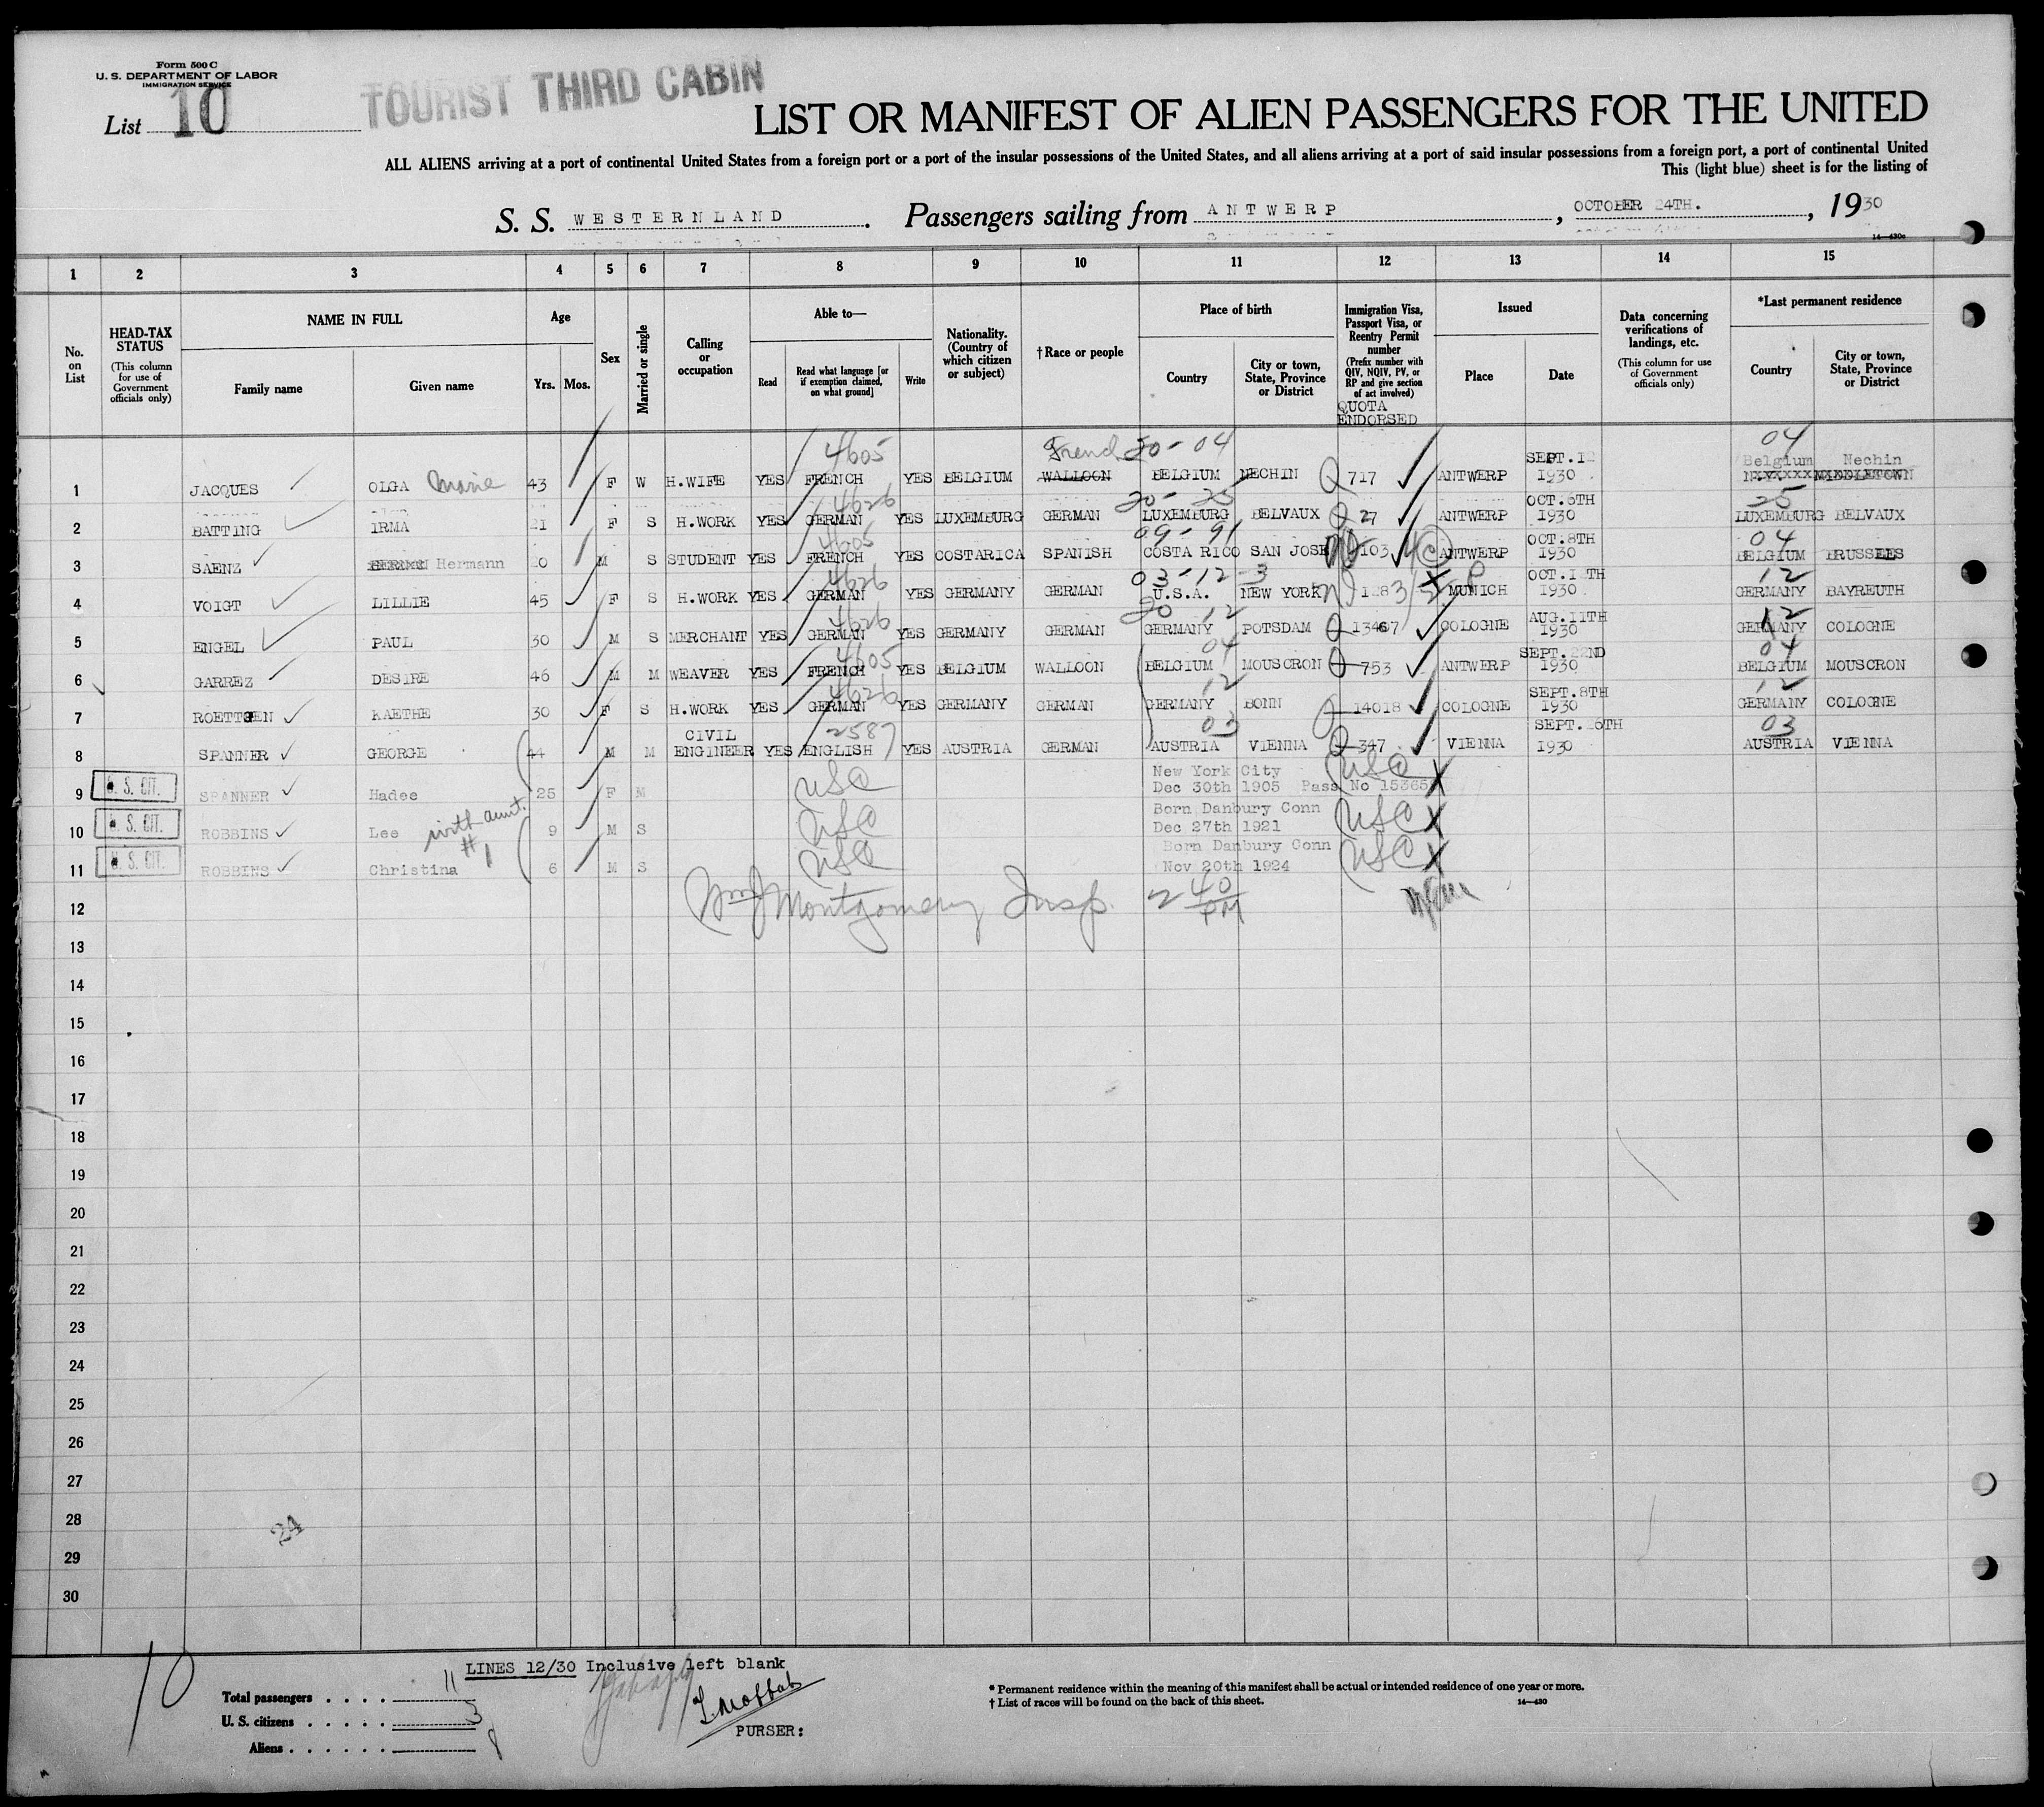 Form 500 C
U. S. DEPARTMENT OF LABOR
IMMIGRATION SERVICE
List 10
TOURIST THIRD CABIN
LIST OR MANIFEST OF ALIEN PASSENGERS FOR THE UNITED
ALL ALIENS arriving at a port of continental United States from a foreign port or a port of the insular possessions of the United States, and all aliens arriving at a port of said insular possessions from a foreign port, a port of continental United
This (light blue) sheet is for the listing of
S. S. WESTERNLAND. Passengers sailing from ANTWERP, OCTOBER 24TH., 1930
14—430c
1 2 3 4 5 6 7 8 9 10 11 12 13 14 15
No. on List
HEAD-TAX STATUS
(This column for use of Government officials only)
NAME IN FULL
Family name
Given name
Age
Yrs. Mos.
Sex
Married or single
Calling or occupation
Able to—
Read
Read what language [or if exemption claimed, on what ground]
Write
Nationality. (Country of which citizen or subject)
†Race or people
Place of birth
Country
City or town, State, Province or District
Immigration Visa, Passport Visa, or Reentry Permit number
(Prefix number with QIV, NQIV, PV, or RP and give section of act involved)
QUOTA ENDORSED
Issued
Place
Date
Data concerning verifications of landings, etc.
(This column for use of Government officials only)
*Last permanent residence
Country
City or town, State, Province or District
4605 French 20-04 SEPT.12 04 Belgium Nechin
1 JACQUES OLGA Marie 43 F W H.WIFE YES FRENCH YES BELGIUM WALLOON BELGIUM NECHIN Q 717 ANTWERP 1930
4626 20- 25 OCT.6TH 25
2 BATTING IRMA 21 F S H.WORK YES GERMAN YES LUXEMBURG GERMAN LUXEMBURG BELVAUX Q 27 ANTWERP 1930 LUXEMBURG BELVAUX
4605 09-91 OCT.8TH 04
3 SAENZ Hermann 20 M S STUDENT YES FRENCH YES COSTARICA SPANISH COSTA RICO SAN JOSE 103 4(c) ANTWERP 1930 BELGIUM BRUSSLES
4626 03-12-3 12
4 VOIGT LILLIE 45 F S H.WORK YES GERMAN YES GERMANY GERMAN U.S.A. NEW YORK MUNICH 1930 GERMANY BAYREUTH
4626 20 12 AUG.11TH 12
5 ENGEL PAUL 30 M S MERCHANT YES GERMAN YES GERMANY GERMAN GERMANY POTSDAM Q 13467 COLOGNE 1930 GERMANY COLOGNE
4605 04 SEPT.22ND 04
6 GARREZ DESIRE 46 M M WEAVER YES FRENCH YES BELGIUM WALLOON BELGIUM MOUSCRON Q 753 ANTWERP 1930 BELGIUM MOUSCRON
4626 12 SEPT.8TH 12
7 ROETTGEN KAETHE 30 F S H.WORK YES GERMAN YES GERMANY GERMAN GERMANY BONN Q 14018 COLOGNE 1930 GERMANY COLOGNE
CIVIL 2587 03 03
8 SPANNER GEORGE 44 M M ENGINEER YES ENGLISH YES AUSTRIA GERMAN AUSTRIA VIENNA Q 347 VIENNA 1930 AUSTRIA VIENNA
New York City USC
9 U. S. CIT. SPANNER Hadee 25 F M USC Dec 30th 1905 Pass No 15365
Born Danbury Conn
10 U. S. CIT. ROBBINS Lee with aunt #1 9 M S USC Dec 27th 1921 USC
Born Danbury Conn
11 U. S. CIT. ROBBINS Christina 6 M S USC Nov 20th 1924 USC
12 Wm J Montgomery Insp. 2 40 PM
13
14
15
16
17
18
19
20
21
22
23
24
25
26
27
28
24
29
30
10
LINES 12/30 Inclusive left blank
Total passengers 11
U. S. citizens 3
Aliens 8
PURSER:
* Permanent residence within the meaning of this manifest shall be actual or intended residence of one year or more.
† List of races will be found on the back of this sheet.
14—430